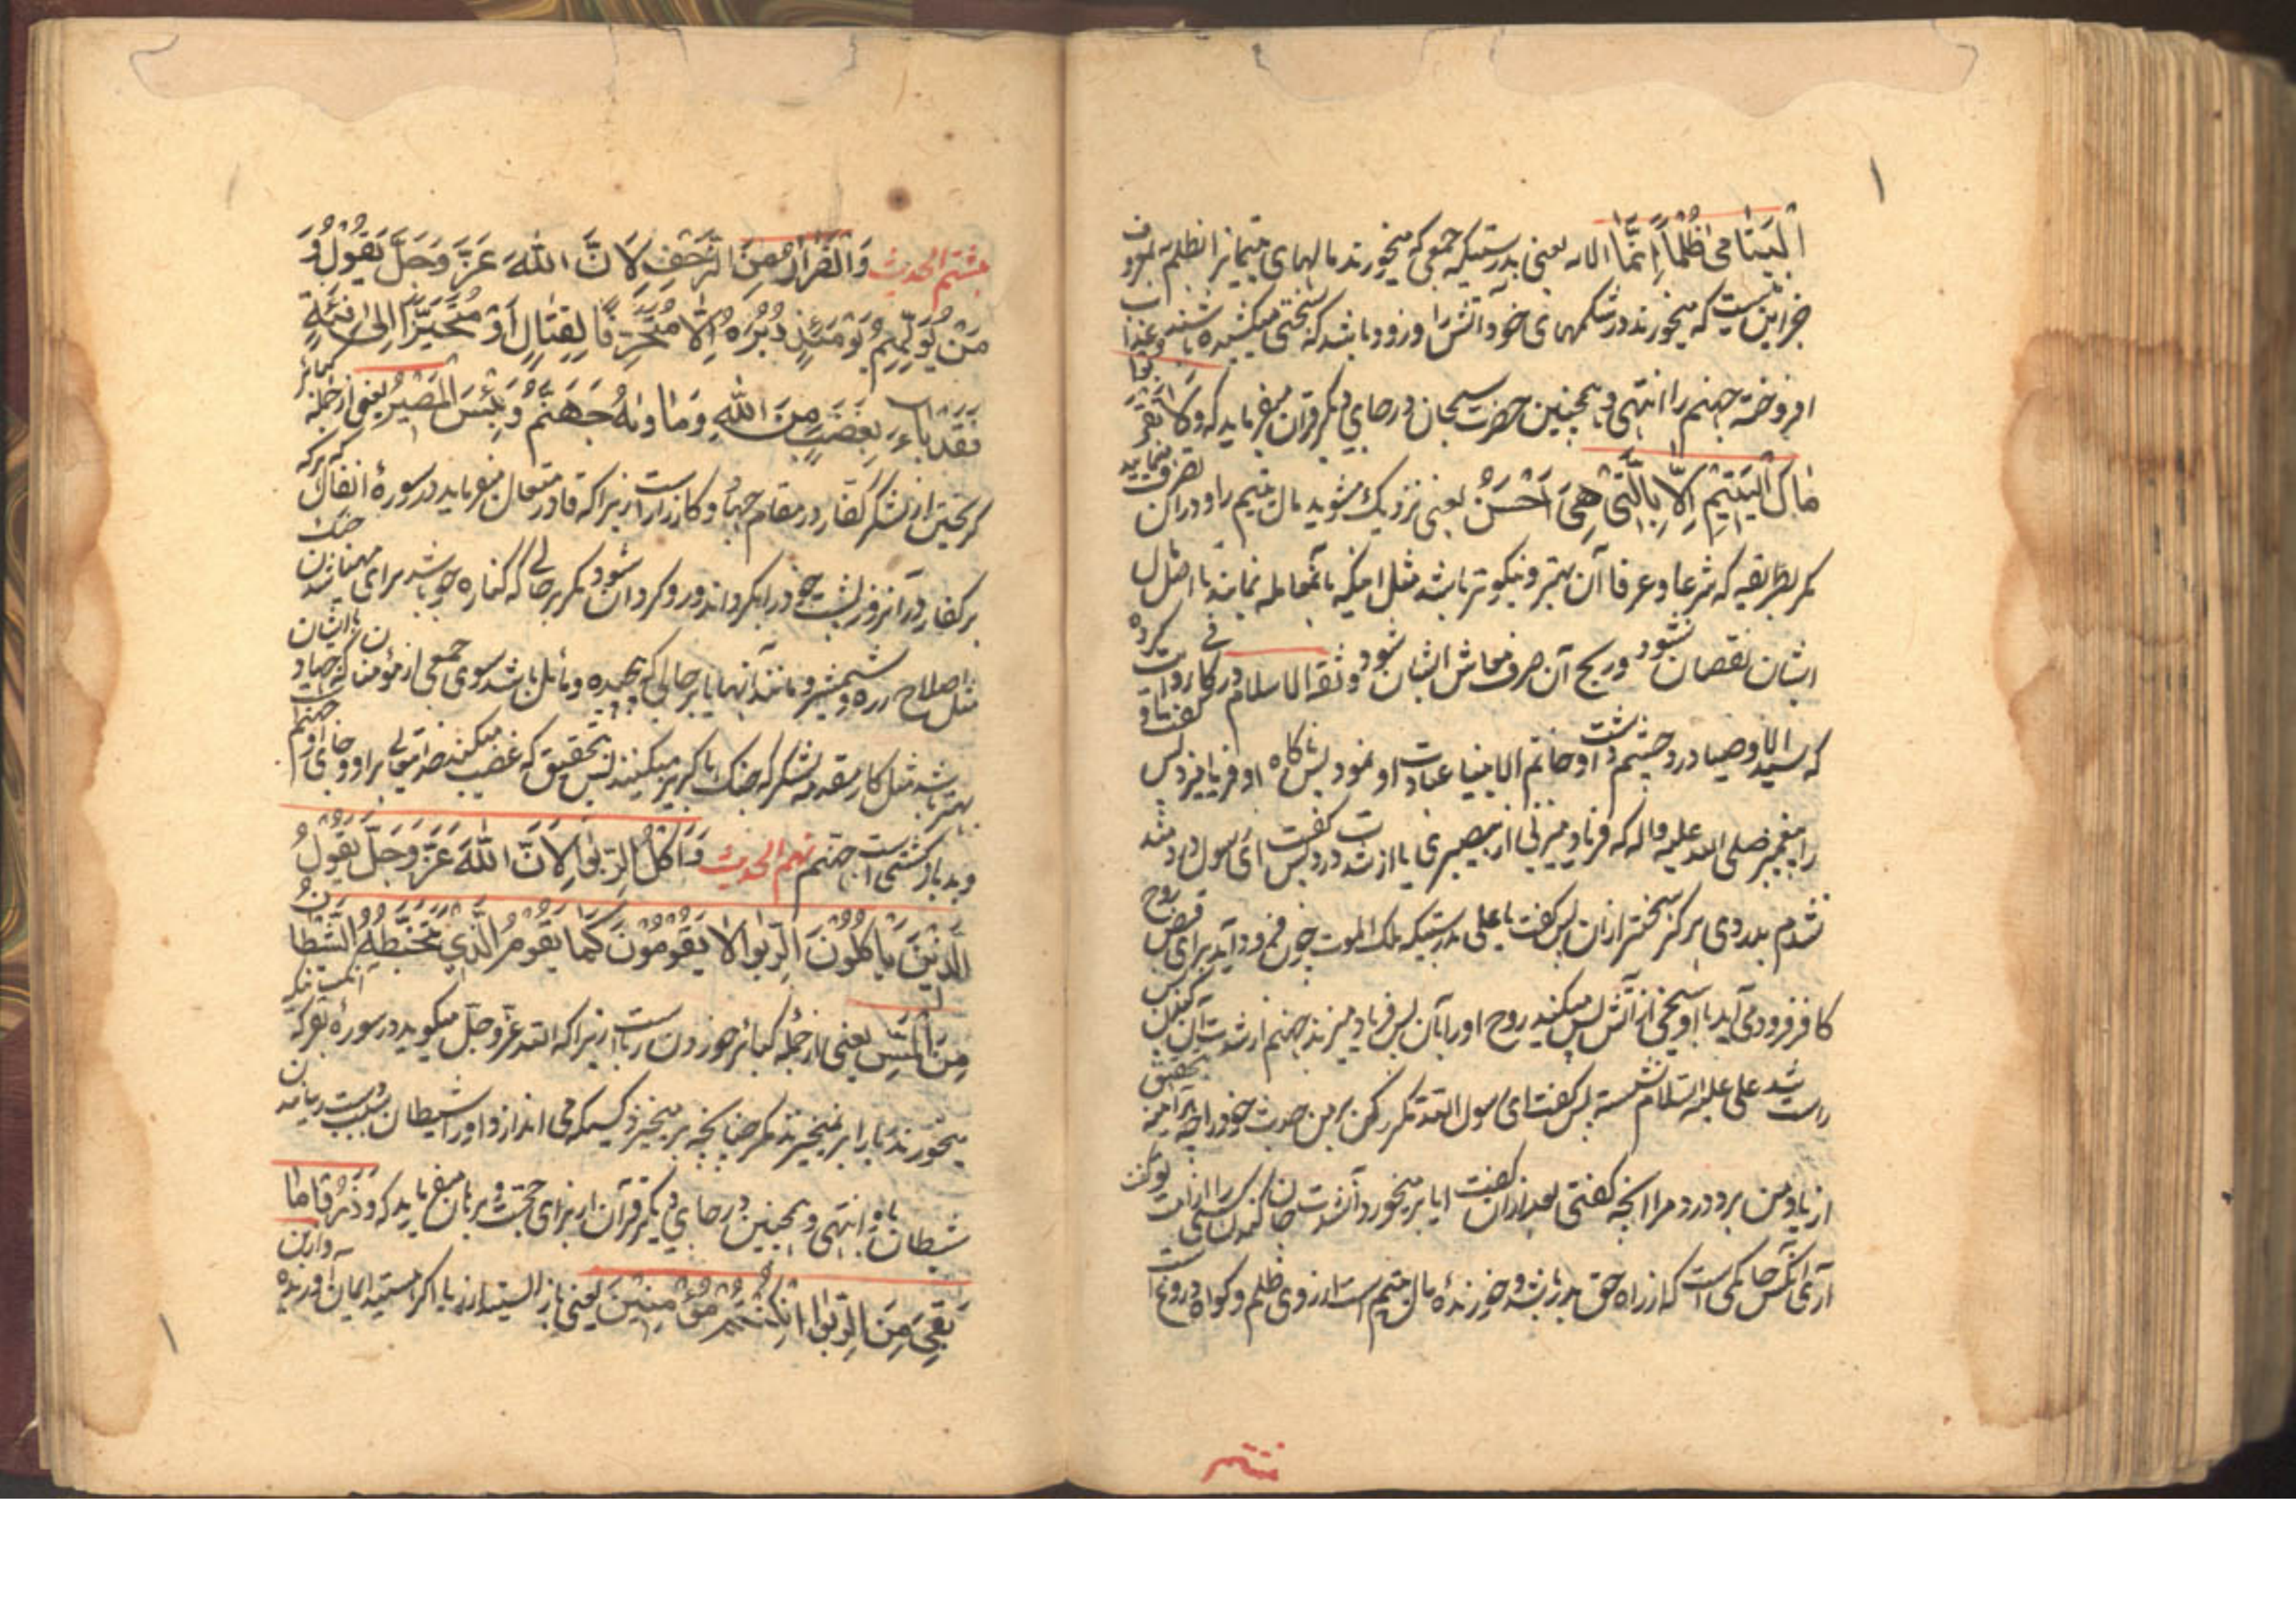 الْیَتَامٰی ظُلْمًا اِنَّمَا الایه یعنی بدرستیکه جمعی که میخورند مالهای یتیمانرا بظلم
جز این نیست که میخورند در شکمهای خود آتش را و زود باشد که سختی میکشیده باشند و عذاب
افروخته جهنم را انتهی و همچنین حضرت سبحان در جای دیگر قرآن میفرماید که وَلَا تَقْرَبُوا
مَالَ الْیَتِیْمِ اِلَّا بِالَّتِیْ هِیَ اَحْسَنُ یعنی نزدیک مشوید مال یتیم را و در آن تصرف منمایید
مکر بطریقیه که شرعا و عرفا آن بهتر و نیکوتر باشد مثل اینکه بآن معامله نمایند تا اصل مال
ایشان نقصان نشود و ربح آن صرف معاش ایشان شود و ثقة الاسلام در کافی روایت کرده
که سید الاوصیا درد چشم داشت و خاتم الانبیا عیادت او نمود پس ناکاه او فریاد زد پس کفت او
را پیغمبر صلی الله علیه واله که فریاد میزنی از بیصبری یا از شدت درد پس کفت ای رسول درد مند
نشدم بدردی هرکز سختتر ازان پس کفت یا علی بدرستیکه ملک الموت چون فرود آید برای قبض روح
کافر فرود می آید با او سیخی از آتش پس میکند روح او را بآن پس فریاد میزند جهنم از شدت آن پس
راست شد علی علیه السلام نشسته پس کفت ای رسول الله مکرر کن بر من حدیث خود را چه بتحقیق
از یاد من برد درد مرا انچه کفتی بعد ازان کفت ایا بر میخورد آن شدت جان کندن کسی را از امت تو کفت
آری آنکس حاکمی است که از راه حق بدر باشد و خورندۀ مال یتیم است از روی ظلم و کواه دروغ است
هشتم الحدیث وَالْفَرَارُ مِنَ الزَّحْفِ لِاَنَّ اللّٰهَ عَزَّ وَجَلَّ یَقُوْلُ وَ
مَنْ یُوَلِّهِمْ یَوْمَئِذٍ دُبُرَهُ اِلَّا مُتَحَرِّفًا لِقِتَالٍ اَوْ مُتَحَیِّزًا اِلٰی فِئَةٍ
فَقَدْ بَاءَ بِغَضَبٍ مِنَ اللّٰهِ وَمَاْوٰهُ جَهَنَّمُ وَبِئْسَ الْمَصِیْرُ یعنی از جمله کبائر
کریختن از لشکر کفار در مقام جهاد و کارزار است زیرا که قادر متعال میفرماید در سورۀ انفال که هرکه
بر کفار در آنروز پشت خود را بکرداند و رو کردان شود مکر بر حالی که کناره جو باشد برای مهمات جنک
مثل اصلاح زره و شمشیر و مانند آنها یا بر حالی که و مائل باشد سوی جمعی از مؤمنان که جهاد با ایشان
بهتر باشد مثل کار مقدمه لشکر که جنک با کریز میکنند پس بتحقیق که غضب میکند خدا تعالی بر او و جای او جهنم است
و بد باز کشتی است جهنم نهم الحدیث وَاَکْلُ الرِّبٰوا لِاَنَّ اللّٰهَ عَزَّ وَجَلَّ یَقُوْلُ
اَلَّذِیْنَ یَاْکُلُوْنَ الرِّبٰوا لَا یَقُوْمُوْنَ اِلَّا کَمَا یَقُوْمُ الَّذِیْ یَتَخَبَّطُهُ الشَّیْطَانُ
مِنَ الْمَسِّ یعنی از جمله کبائر خوردن ربا است زیرا که الله عز و جل میکوید در سورۀ بقره که
میخورند ربا را بر نمیخیزند مکر چنانچه بر میخیزد کسیکه می اندازد او را شیطان بسبب
شیطان باو انتهی و همچنین در جای دیکر قرآن از برای حجت و برهان میفرماید که وَذَرُوْا مَا
بَقِیَ مِنَ الرِّبٰوا اِنْ کُنْتُمْ مُؤْمِنِیْنَ یعنی باز ایستید از ربا اکر هستید ایمان آورنده